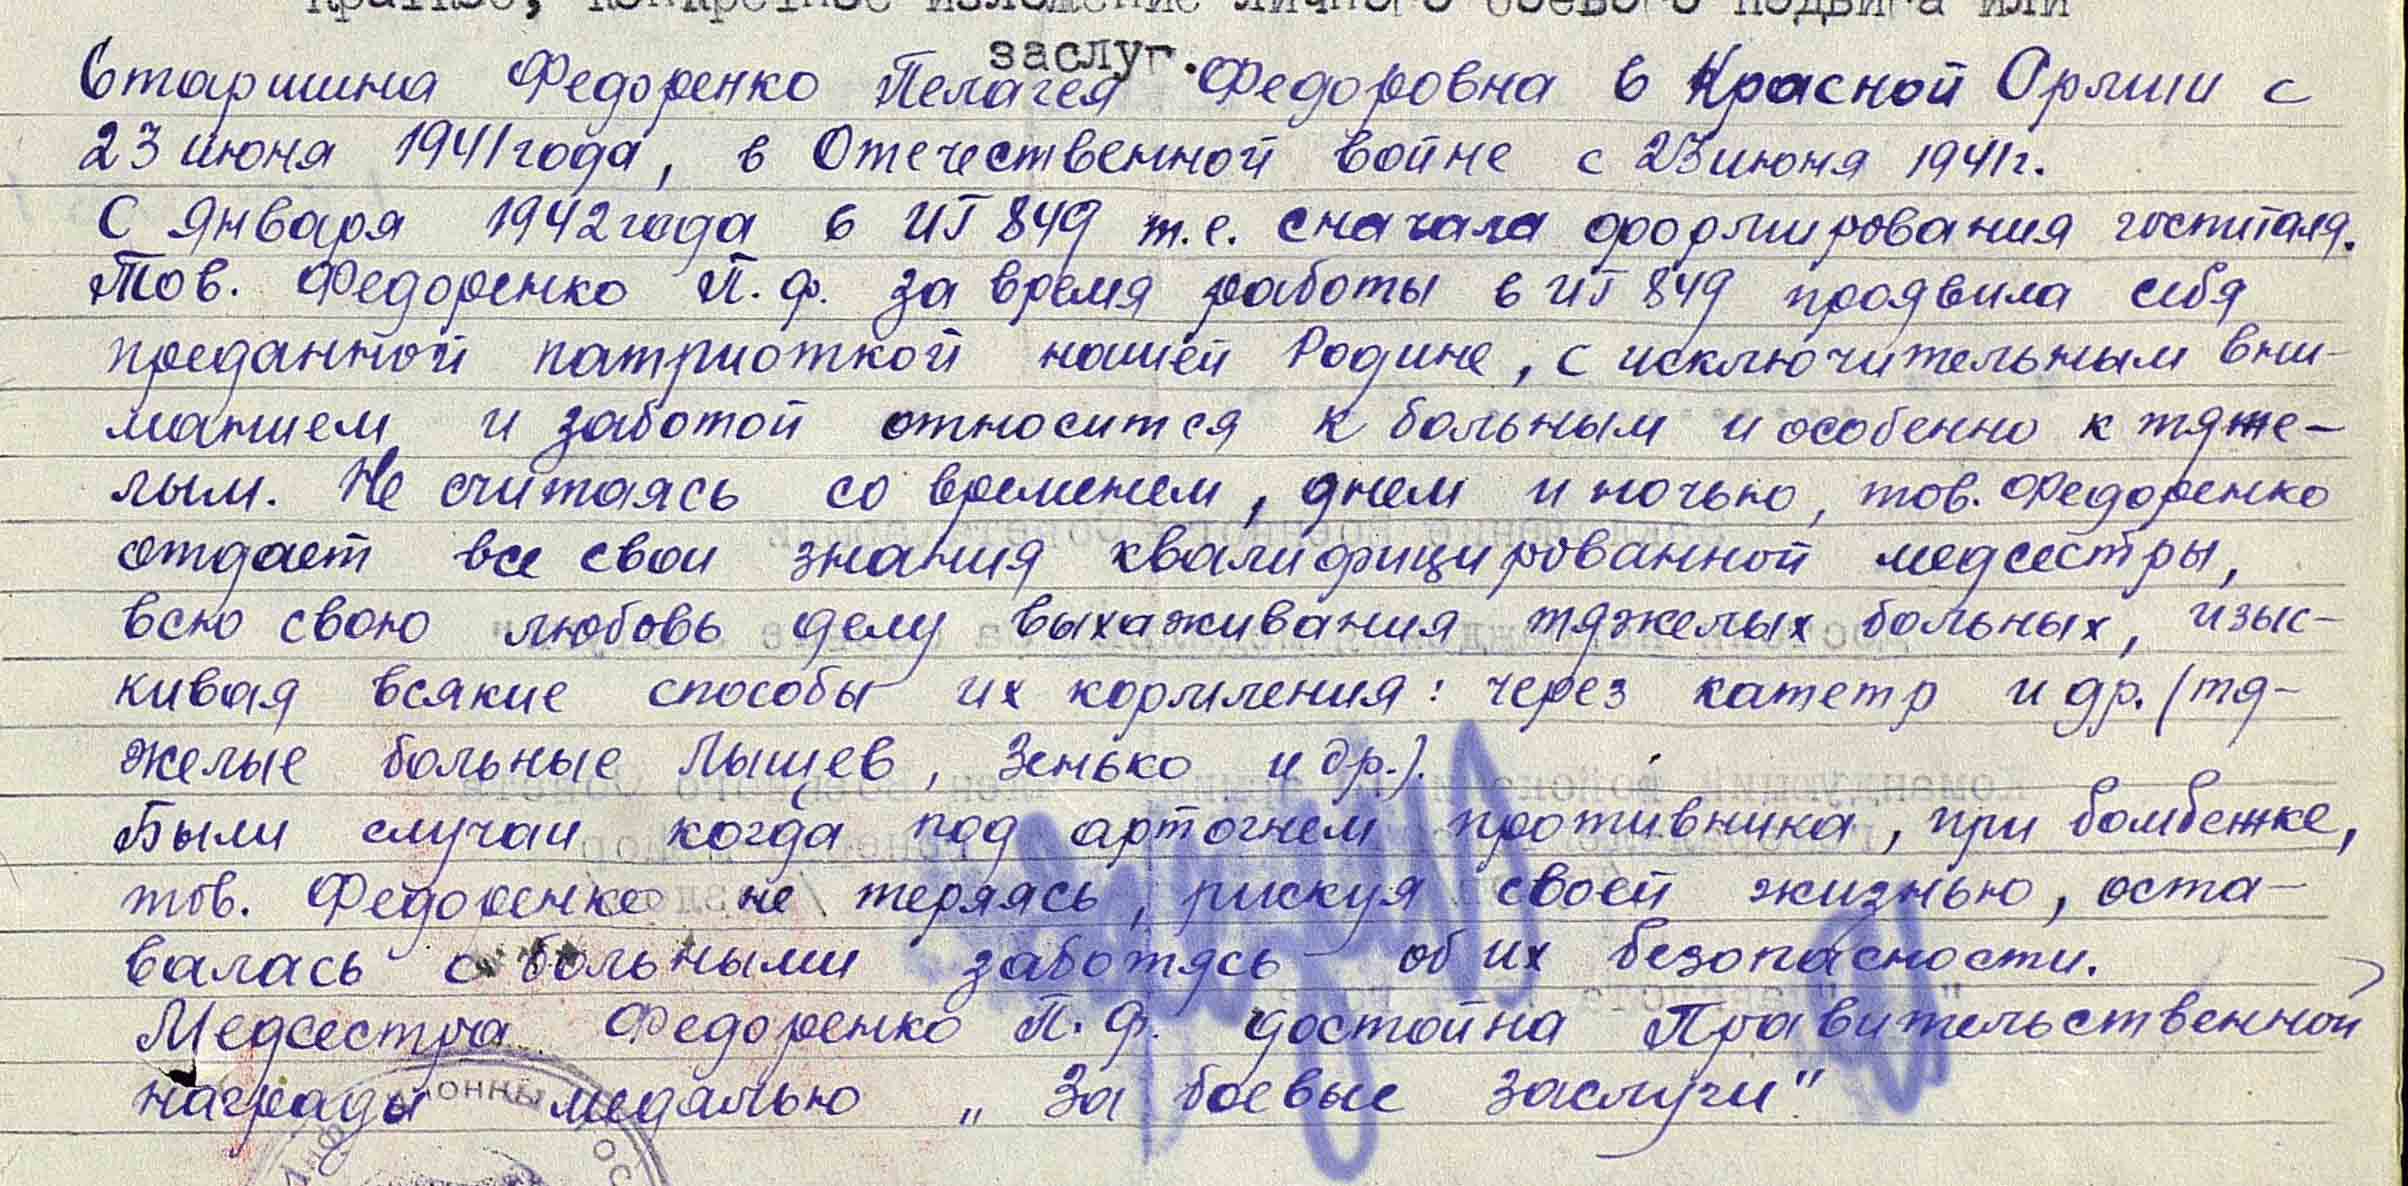 Краткое, конкретное изложение личного боевого подвига или
заслуг.
Старшина Федоренко Пелагея Федоровна в Красной Армии с
23 июня 1941 года, в Отечественной войне с 23 июня 1941 г.
С января 1942 года в ИГ 849 т.е. с начала формирования госпиталя.
Тов. Федоренко П.Ф. за время работы в ИГ 849 проявила себя
преданной патриоткой нашей Родине, с исключительным вни-
манием и заботой относится к больным и особенно к тяже-
лым. Не считаясь со временем, днем и ночью, тов. Федоренко
отдает все свои знания квалифицированной медсестры,
всю свою любовь делу выхаживания тяжелых больных, изыс-
кивая всякие способы их кормления: через катетр и др. (тя-
желые больные Лышев, Зенько и др.).
Были случаи когда под артогнем противника, при бомбежке,
тов. Федоренко не теряясь, рискуя своей жизнью, оста-
валась с больными заботясь об их безопасности.
Медсестра Федоренко П.Ф. достойна Правительственной
награды медалью „За боевые заслуги"